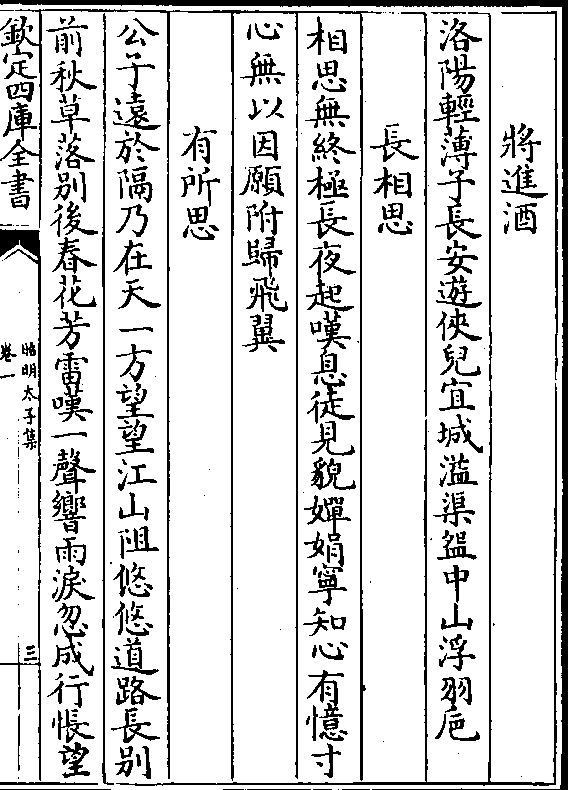 將進酒
洛陽輕薄子長安遊俠兒宜城溢渠盌中山浮羽巵
長相思
相思無終極長夜起嘆息徒見貌嬋娟寧知心有憶寸
心無以因願附歸飛翼
有所思
公子遠於隔乃在天一方望望江山阻悠悠道路長别
前秋草落别後春花芳雷嘆一聲響雨淚忽成行悵望
欽定四庫全書
昭明太子集
卷一
三